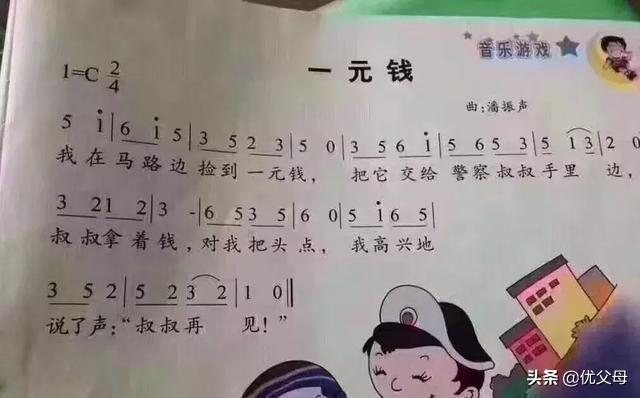 音乐游戏
1=C 2/4
一元钱
曲:潘振声
5 i|6 i 5|3 5 2 3|5 0|3 5 6 i|5 6 5 3|5 1 3|2 0
我在马路边捡到一元钱, 把它交给警察叔叔手里边,
3 2 1 2|3 -|6 5 3 5|6 0|5 i 6 5|
叔叔拿着钱,对我把头点, 我高兴地
3 5 2|5 2 3 2|1 0‖
说了声:“叔叔再 见!”
头条 @优父母